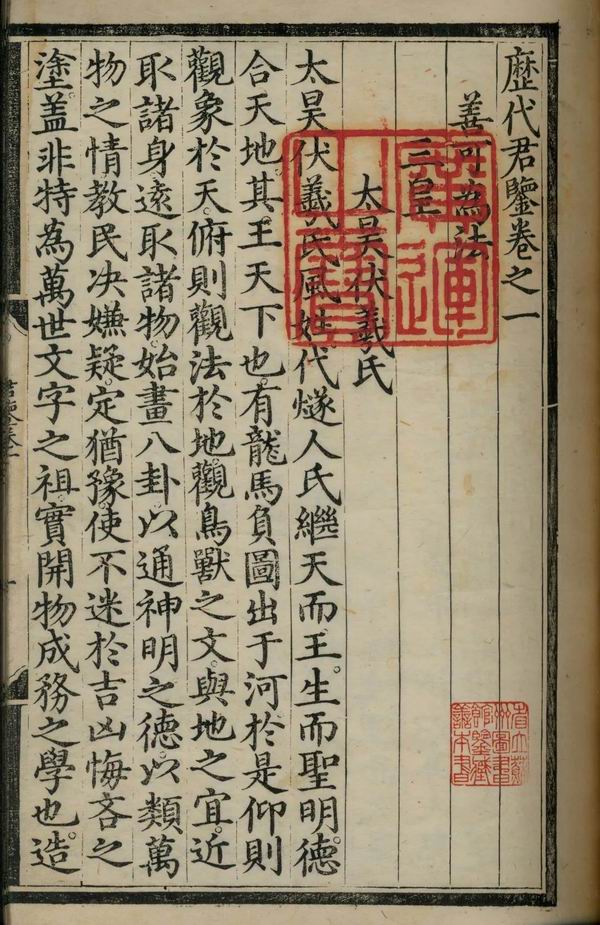 歷代君鑒卷之一
善可為法
三皇
太昊伏羲氏
太昊伏羲氏風姓代燧人氏繼天而王。生而聖明。德
合天地。其王天下也。有龍馬負圖出于河於是仰則
觀象於天。俯則觀法於地。觀鳥獸之文。與地之宜。近
取諸身遠取諸物。始畫八卦以通神明之德。以類萬
物之情教民决嫌疑。定猶豫。使不迷於吉凶悔吝之
塗。蓋非特為萬世文字之祖。實開物成務之學也。造
廣運
之寶
省立蘇
州圖書
館鑒藏
善本書